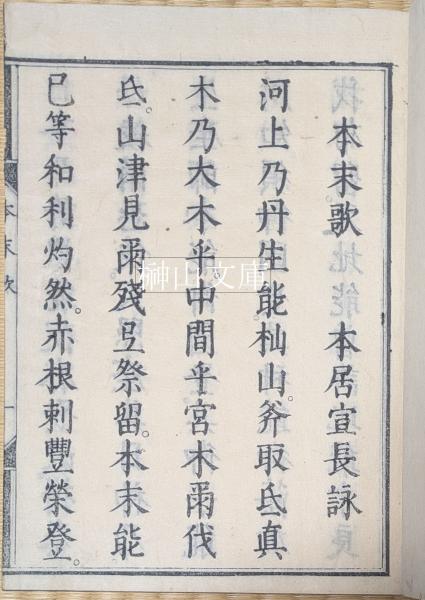 本末歌　本居宣長詠
河上乃丹生能杣山。斧取氐真
木乃大木乎。中間乎宮木爾伐
氐。山津見爾残弖祭留。本末能
已等和利灼然。赤根刺豐榮登。
本末歌　一
榊山文庫